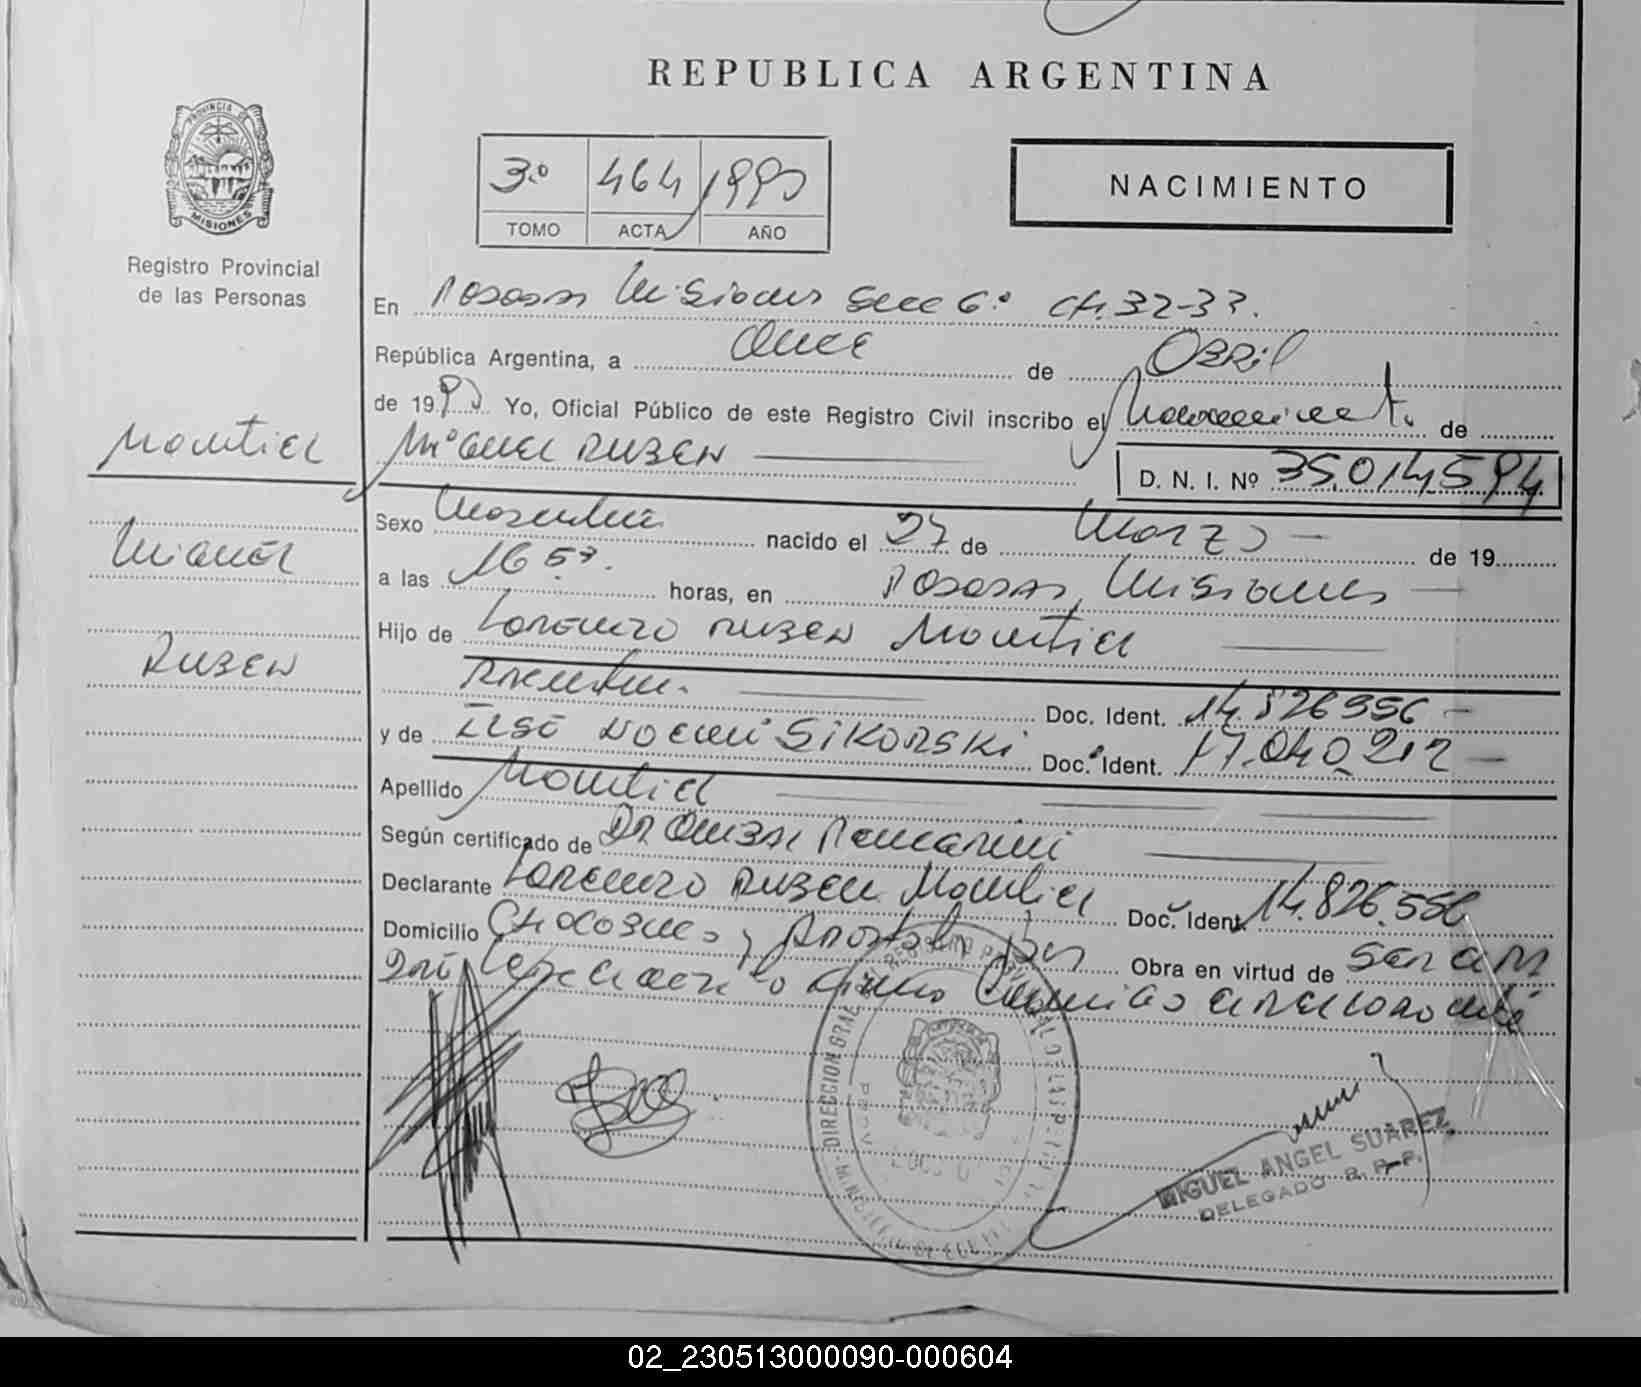 REPUBLICA ARGENTINA
PROVINCIA DE
MISIONES
Registro Provincial
de las Personas
3º 464 1990
TOMO ACTA AÑO
NACIMIENTO
En Posadas Misiones Secc 6º Ch. 32-33.
República Argentina, a Once de Abril
de 1990 Yo, Oficial Público de este Registro Civil inscribo el Nacimiento de
Miguel RUBEN D. N. I. Nº 35.014.594
Montiel
Miguel
RUBEN
Sexo Masculino nacido el 27 de Marzo de 19
a las 16 53. horas, en Posadas, Misiones
Hijo de Lorenzo RUBEN Montiel
Argentino. Doc. Ident. 14.826.556
y de Elsa Noemi SIKORSKI Doc. Ident. 17.040.212
Apellido Montiel
Según certificado de DR
Declarante Lorenzo RUBEN Montiel Doc. Ident. 14.826.556
Domicilio Obra en virtud de ser
DIRECCION GRAL DE REGISTRO
MIGUEL ANGEL SUAREZ
DELEGADO R. P. P.
02_230513000090-000604